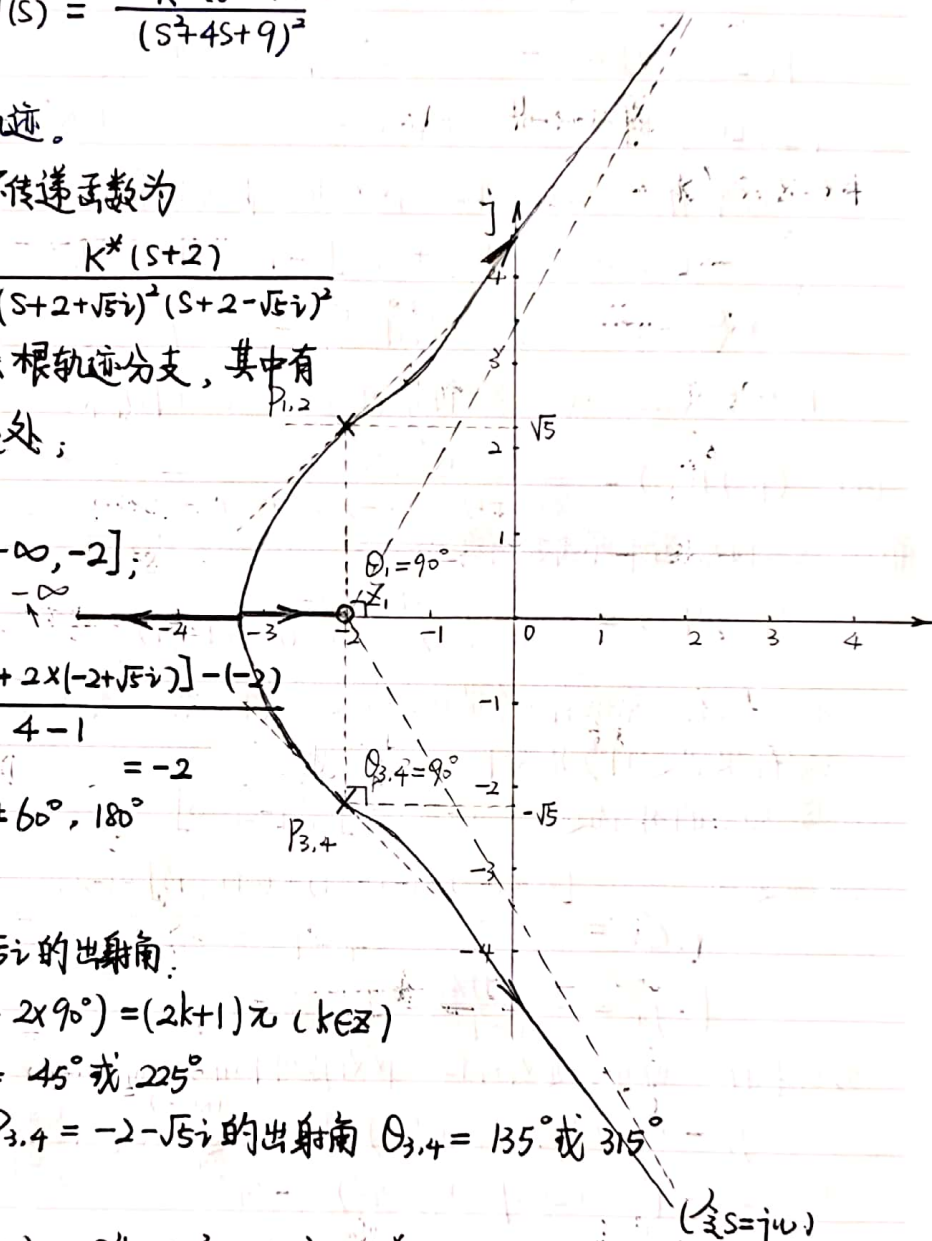 (S) =
(S²+4S+9)²
迹。
传递函数为
K*(S+2)
(S+2+√5i)²(S+2-√5i)²
根轨迹分支，其中有
处；
-∞,-2];
-∞
+ 2×(-2+√5i)]-(-2)
4-1
= -2
= 60°, 180°
√5i的出射角:
2×90°) = (2k+1)π (k∈Z)
= 45°或 225°
P3,4 = -2-√5i的出射角 θ3,4 = 135°或 315°
(令S=jω)
j
4
3
P1,2
√5
2
1
θ1=90°
Z1
-4 -3 -2 -1 0 1 2 3 4
-1
θ3,4=90°
-2
-√5
P3,4
-3
-4